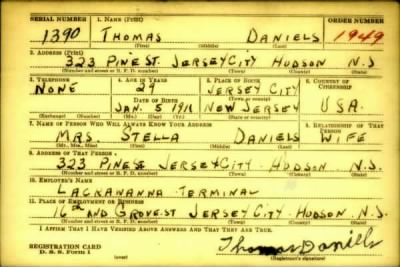 SERIAL NUMBER 1. NAME (Print) ORDER NUMBER
1390 THOMAS DANIELS 1949
(First) (Middle) (Last)
2. ADDRESS (Print)
323 PINE ST. JERSEY CITY HUDSON N.J.
(Number and street or R. F. D. number) (Town) (County) (State)
3. TELEPHONE 4. AGE IN YEARS 5. PLACE OF BIRTH 6. COUNTRY OF CITIZENSHIP
NONE 29 JERSEY CITY
DATE OF BIRTH (Town or county)
JAN. 5 1911 NEW JERSEY U.S.A.
7. NAME OF PERSON WHO WILL ALWAYS KNOW YOUR ADDRESS 8. RELATIONSHIP OF THAT PERSON
MRS. STELLA DANIELS WIFE
(Mr., Mrs., Miss) (First) (Middle) (Last)
9. ADDRESS OF THAT PERSON
323 PINE ST JERSEY CITY - HUDSON - N.J.
(Number and street or R. F. D. number) (Town) (County) (State)
10. EMPLOYER'S NAME
LACKAWANNA TERMINAL
11. PLACE OF EMPLOYMENT OR BUSINESS
16th AND GROVE ST JERSEY CITY - HUDSON - N.J.
(Number and street or R. F. D. number) (Town) (County) (State)
I AFFIRM THAT I HAVE VERIFIED ABOVE ANSWERS AND THAT THEY ARE TRUE.
REGISTRATION CARD
D. S. S. Form 1
Thomas Daniels
(Registrant's signature)